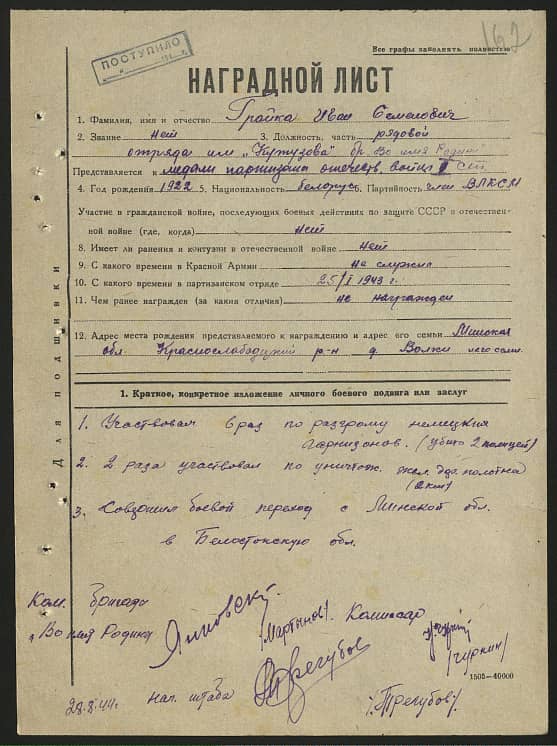 162
Все графы заполнять полностью
ПОСТУПИЛО
НАГРАДНОЙ ЛИСТ
1. Фамилия, имя и отчество Грайка Иван Семенович
2. Звание нет 3. Должность, часть рядовой
отряда им "Кутузова" бр. Во имя Родины
Представляется к медали партизана отечеств. войны II ст.
4. Год рождения 1922 5. Национальность белорус 6. Партийность член ВЛКСМ
Участие в гражданской войне, последующих боевых действиях по защите СССР и отечествен-
ной войне (где, когда) нет
8. Имеет ли ранения и контузии в отечественной войне нет
9. С какого времени в Красной Армии не служил
10. С какого времени в партизанском отряде 25/I 1943 г.
11. Чем ранее награжден (за какия отличия) не награжден
12. Адрес места рождения представляемого к награждению и адрес его семьи Минская
обл. Краснослабодцкий р-н д.
Для подшивки
1. Краткое, конкретное изложение личного боевого подвига или заслуг
1. Участвовал 6 раз по разгрому немецких
гарнизонов. (убито 2 полицей)
2. 2 раза участвовал по уничтож. жел. дор. полотна
(2 км)
3. Совершил боевой переход с Минской обл.
в Белостокскую обл.
Ком. бригады
"Во имя Родины"
/Мартынов/
Комиссар
/Чуркин/
28.8.44 г. нач. штаба
Трегубов
/Трегубов/
1505-40000